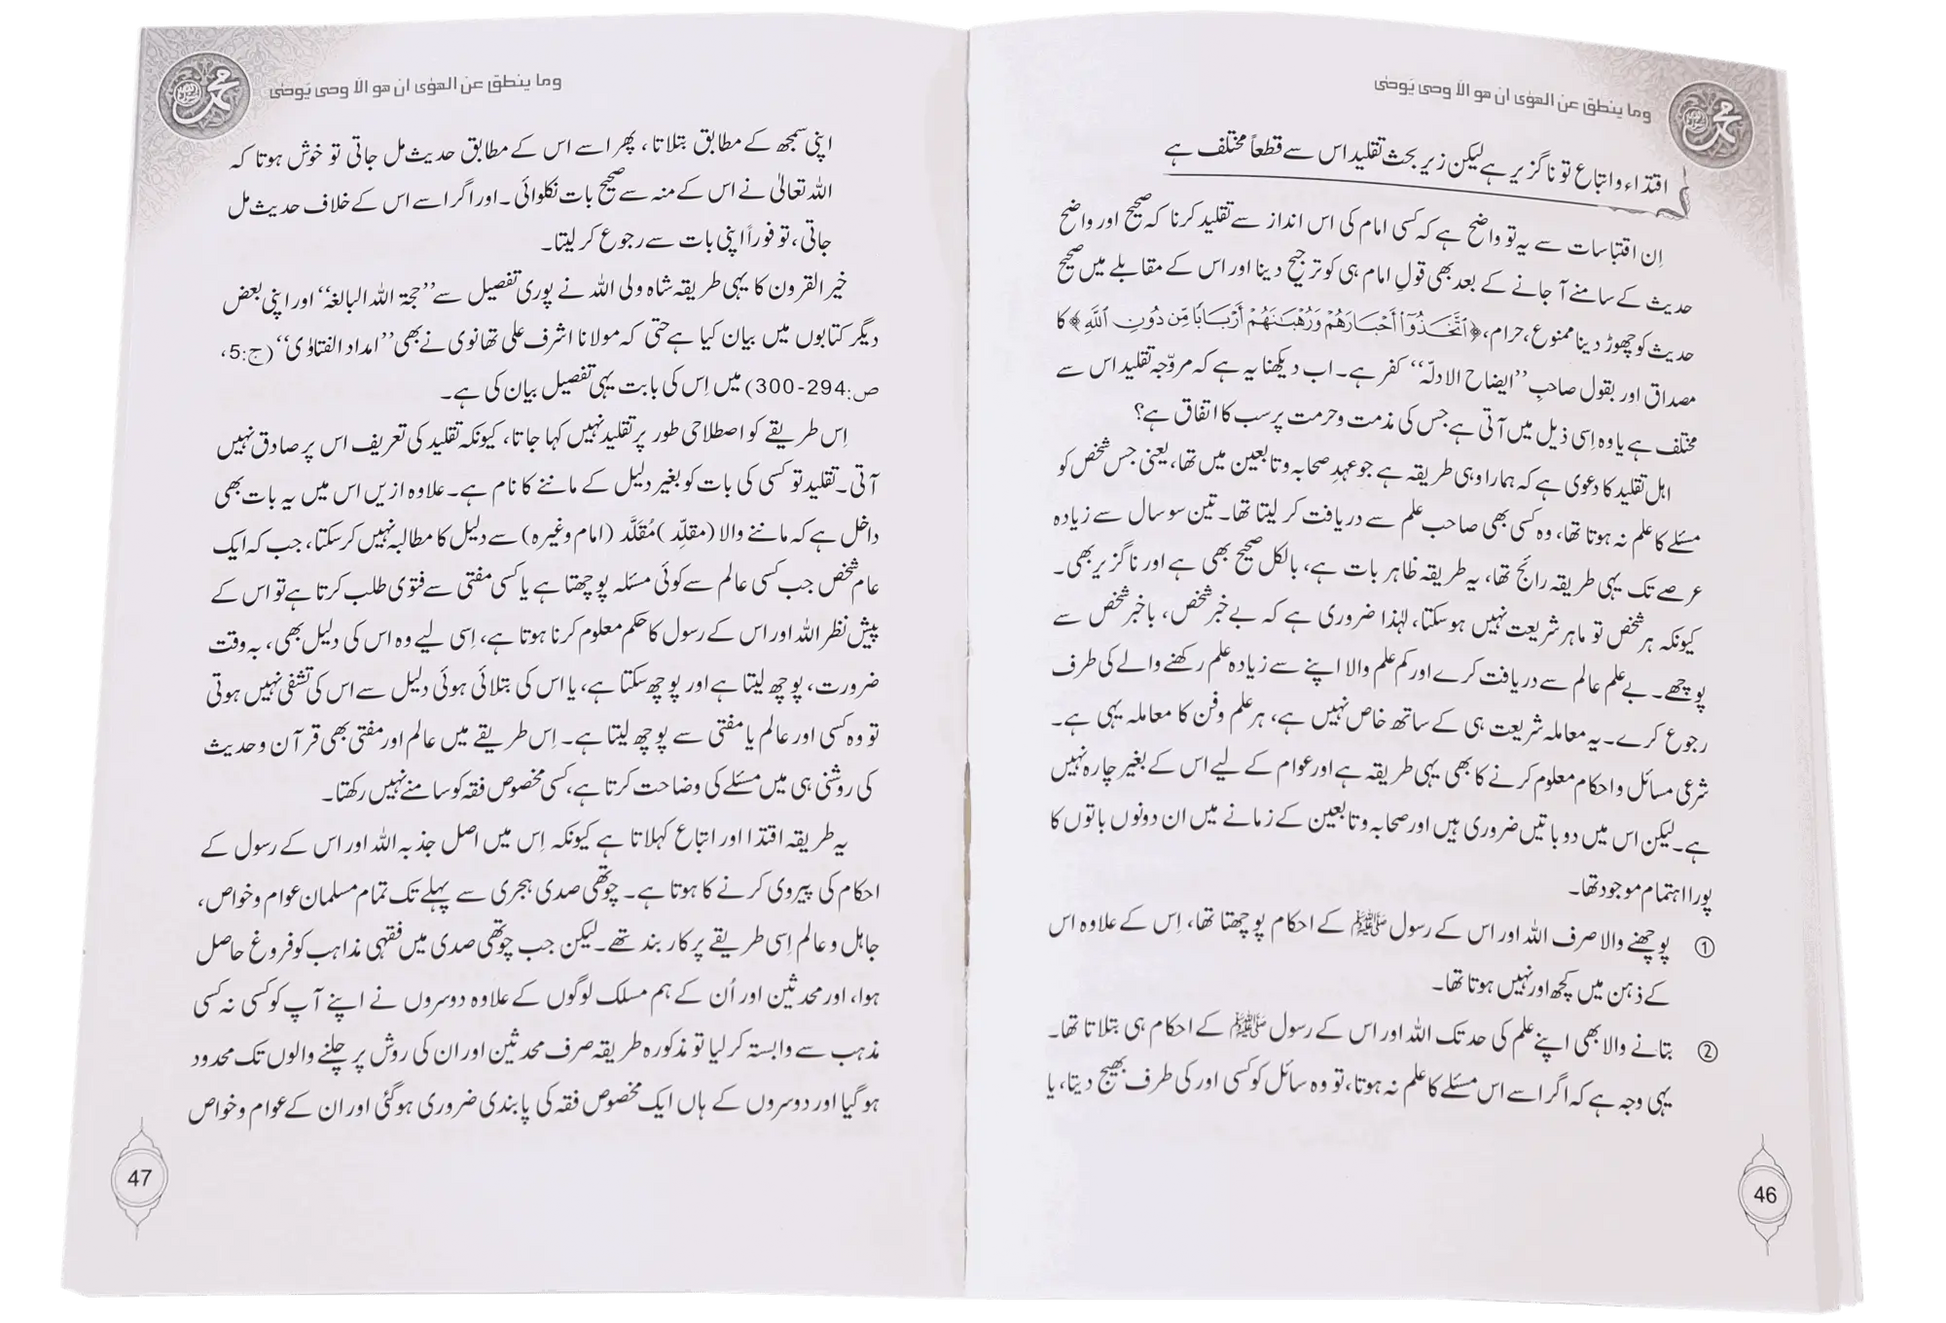 وما ينطق عن الهوٰى ان هو الا وحى يوحىٰ
اقتداء و اتباع تو ناگزیر ہے لیکن زیر بحث تقلید اس سے قطعاً مختلف ہے
اِن اقتباسات سے یہ تو واضح ہے کہ کسی امام کی اس انداز سے تقلید کرنا کہ صحیح اور واضح
حدیث کے سامنے آ جانے کے بعد بھی قولِ امام ہی کو ترجیح دینا اور اس کے مقابلے میں صحیح
حدیث کو چھوڑ دینا ممنوع، حرام، ﴿ٱتَّخَذُوٓا۟ أَحْبَارَهُمْ وَرُهْبَـٰنَهُمْ أَرْبَابًا مِّن دُونِ ٱللَّهِ﴾ کا
مصداق اور بقول صاحبِ ’’ایضاح الادلّہ‘‘ کفر ہے۔ اب دیکھنا یہ ہے کہ مروّجہ تقلید اس سے
مختلف ہے یا وہ اِسی ذیل میں آتی ہے جس کی مذمت و حرمت پر سب کا اتفاق ہے؟
اہل تقلید کا دعوی ہے کہ ہمارا وہی طریقہ ہے جو عہدِ صحابہ و تابعین میں تھا، یعنی جس شخص کو
مسئلے کا علم نہ ہوتا تھا، وہ کسی بھی صاحب علم سے دریافت کر لیتا تھا۔ تین سو سال سے زیادہ
عرصے تک یہی طریقہ رائج تھا، یہ طریقہ ظاہر بات ہے، بالکل صحیح بھی ہے اور ناگزیر بھی۔
کیونکہ ہر شخص تو ماہر شریعت نہیں ہو سکتا، لہٰذا ضروری ہے کہ بے خبر شخص، باخبر شخص سے
پوچھے۔ بے علم عالم سے دریافت کرے اور کم علم والا اپنے سے زیادہ علم رکھنے والے کی طرف
رجوع کرے۔ یہ معاملہ شریعت ہی کے ساتھ خاص نہیں ہے، ہر علم وفن کا معاملہ یہی ہے۔
شرعی مسائل و احکام معلوم کرنے کا بھی یہی طریقہ ہے اور عوام کے لیے اس کے بغیر چارہ نہیں
ہے۔ لیکن اس میں دو باتیں ضروری ہیں اور صحابہ و تابعین کے زمانے میں ان دونوں باتوں کا
پورا اہتمام موجود تھا۔
① پوچھنے والا صرف اللہ اور اس کے رسول ﷺ کے احکام پوچھتا تھا، اِس کے علاوہ اس
کے ذہن میں کچھ اور نہیں ہوتا تھا۔
② بتانے والا بھی اپنے علم کی حد تک اللہ اور اس کے رسول ﷺ کے احکام ہی بتلاتا تھا۔
یہی وجہ ہے کہ اگر اسے اس مسئلے کا علم نہ ہوتا، تو وہ سائل کو کسی اور کی طرف بھیج دیتا، یا
46
وما ينطق عن الهوٰى ان هو الا وحى يوحىٰ
اپنی سمجھ کے مطابق بتلاتا، پھر اسے اس کے مطابق حدیث مل جاتی تو خوش ہوتا کہ
اللہ تعالیٰ نے اس کے منہ سے صحیح بات نکلوائی۔ اور اگر اسے اس کے خلاف حدیث مل
جاتی، تو فوراً اپنی بات سے رجوع کر لیتا۔
خیر القرون کا یہی طریقہ شاہ ولی اللہ نے پوری تفصیل سے ’’حجۃ اللہ البالغہ‘‘ اور اپنی بعض
دیگر کتابوں میں بیان کیا ہے حتی کہ مولانا اشرف علی تھانوی نے بھی ’’امداد الفتاوٰی‘‘ (ج:5،
ص:294-300) میں اِس کی بابت یہی تفصیل بیان کی ہے۔
اِس طریقے کو اصطلاحی طور پر تقلید نہیں کہا جاتا، کیونکہ تقلید کی تعریف اس پر صادق نہیں
آتی۔ تقلید تو کسی کی بات کو بغیر دلیل کے ماننے کا نام ہے۔ علاوہ ازیں اس میں یہ بات بھی
داخل ہے کہ ماننے والا (مقلِّد) مُقَلَّد (امام وغیرہ) سے دلیل کا مطالبہ نہیں کر سکتا، جب کہ ایک
عام شخص جب کسی عالم سے کوئی مسئلہ پوچھتا ہے یا کسی مفتی سے فتوی طلب کرتا ہے تو اس کے
پیش نظر اللہ اور اس کے رسول کا حکم معلوم کرنا ہوتا ہے، اِسی لیے وہ اس کی دلیل بھی، بہ وقت
ضرورت، پوچھ لیتا ہے اور پوچھ سکتا ہے، یا اس کی بتلائی ہوئی دلیل سے اس کی تشفی نہیں ہوتی
تو وہ کسی اور عالم یا مفتی سے پوچھ لیتا ہے۔ اِس طریقے میں عالم اور مفتی بھی قرآن و حدیث
کی روشنی ہی میں مسئلے کی وضاحت کرتا ہے، کسی مخصوص فقہ کو سامنے نہیں رکھتا۔
یہ طریقہ اقتدا اور اتباع کہلاتا ہے کیونکہ اِس میں اصل جذبہ اللہ اور اس کے رسول کے
احکام کی پیروی کرنے کا ہوتا ہے۔ چوتھی صدی ہجری سے پہلے تک تمام مسلمان عوام و خواص،
جاہل و عالم اِسی طریقے پر کار بند تھے۔ لیکن جب چوتھی صدی میں فقہی مذاہب کو فروغ حاصل
ہوا، اور محدثین اور اُن کے ہم مسلک لوگوں کے علاوہ دوسروں نے اپنے آپ کو کسی نہ کسی
مذہب سے وابستہ کر لیا تو مذکورہ طریقہ صرف محدثین اور ان کی روش پر چلنے والوں تک محدود
ہو گیا اور دوسروں کے ہاں ایک مخصوص فقہ کی پابندی ضروری ہو گئی اور ان کے عوام و خواص
47